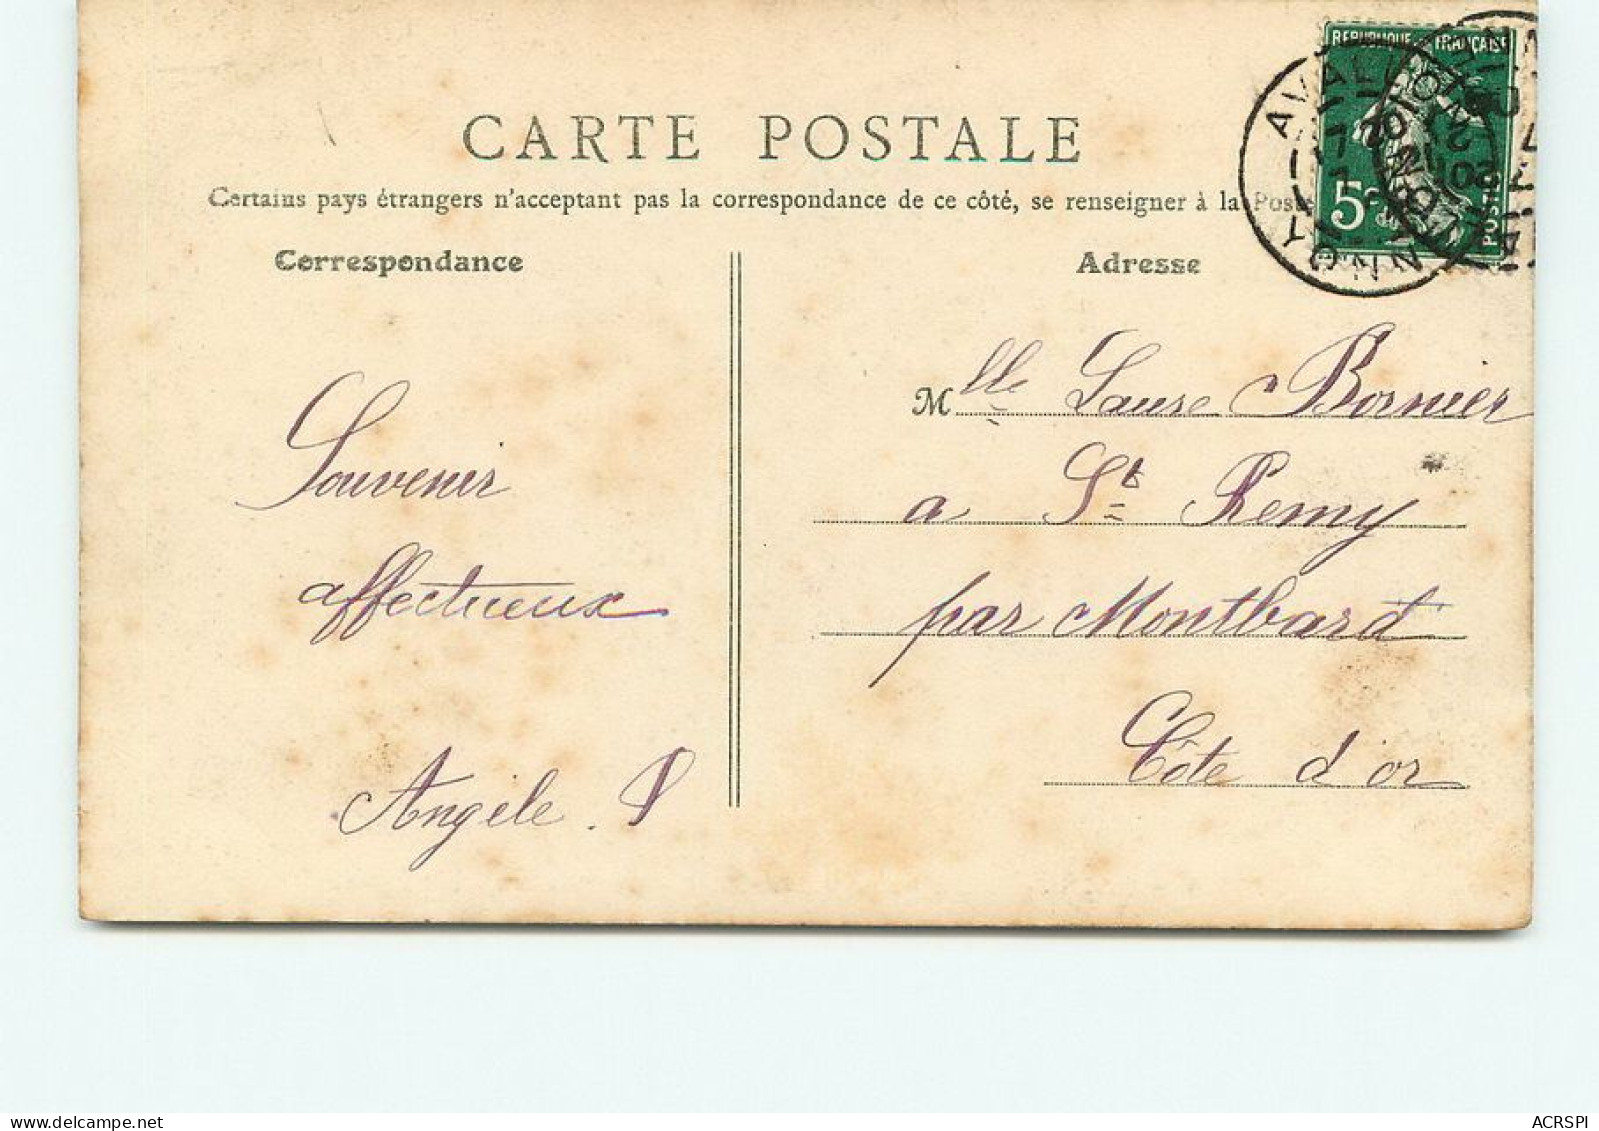 CARTE POSTALE
Certains pays étrangers n'acceptant pas la correspondance de ce côté, se renseigner à la Poste
Correspondance
Adresse
RÉPUBLIQUE FRANÇAISE
5c
POSTES
AVALLON
YONNE
Mlle Laure Bornier
a St Remy
par Montbard
Côte d'or
Souvenir
affectueux
Angèle.
ACRSPI